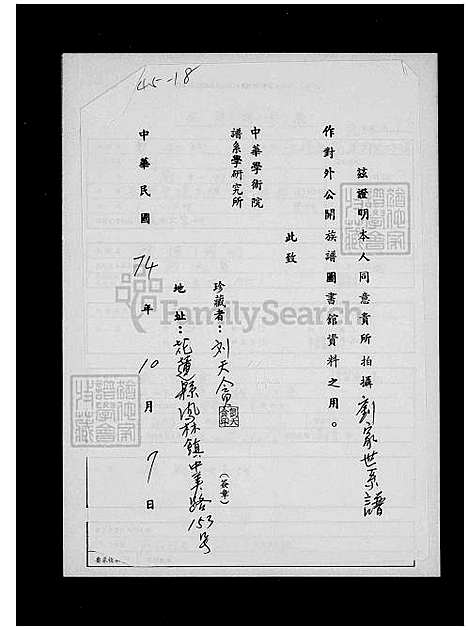 45-18
茲證明本人同意貴所拍攝劉家世系譜
作對外公開族譜圖書館資料之用。
此致
中華學術院
譜系學研究所
珍藏者：刘天
(簽章)
地址：花蓮縣鳳林鎮中美路153号
中華民國74年10月7日
FamilySearch